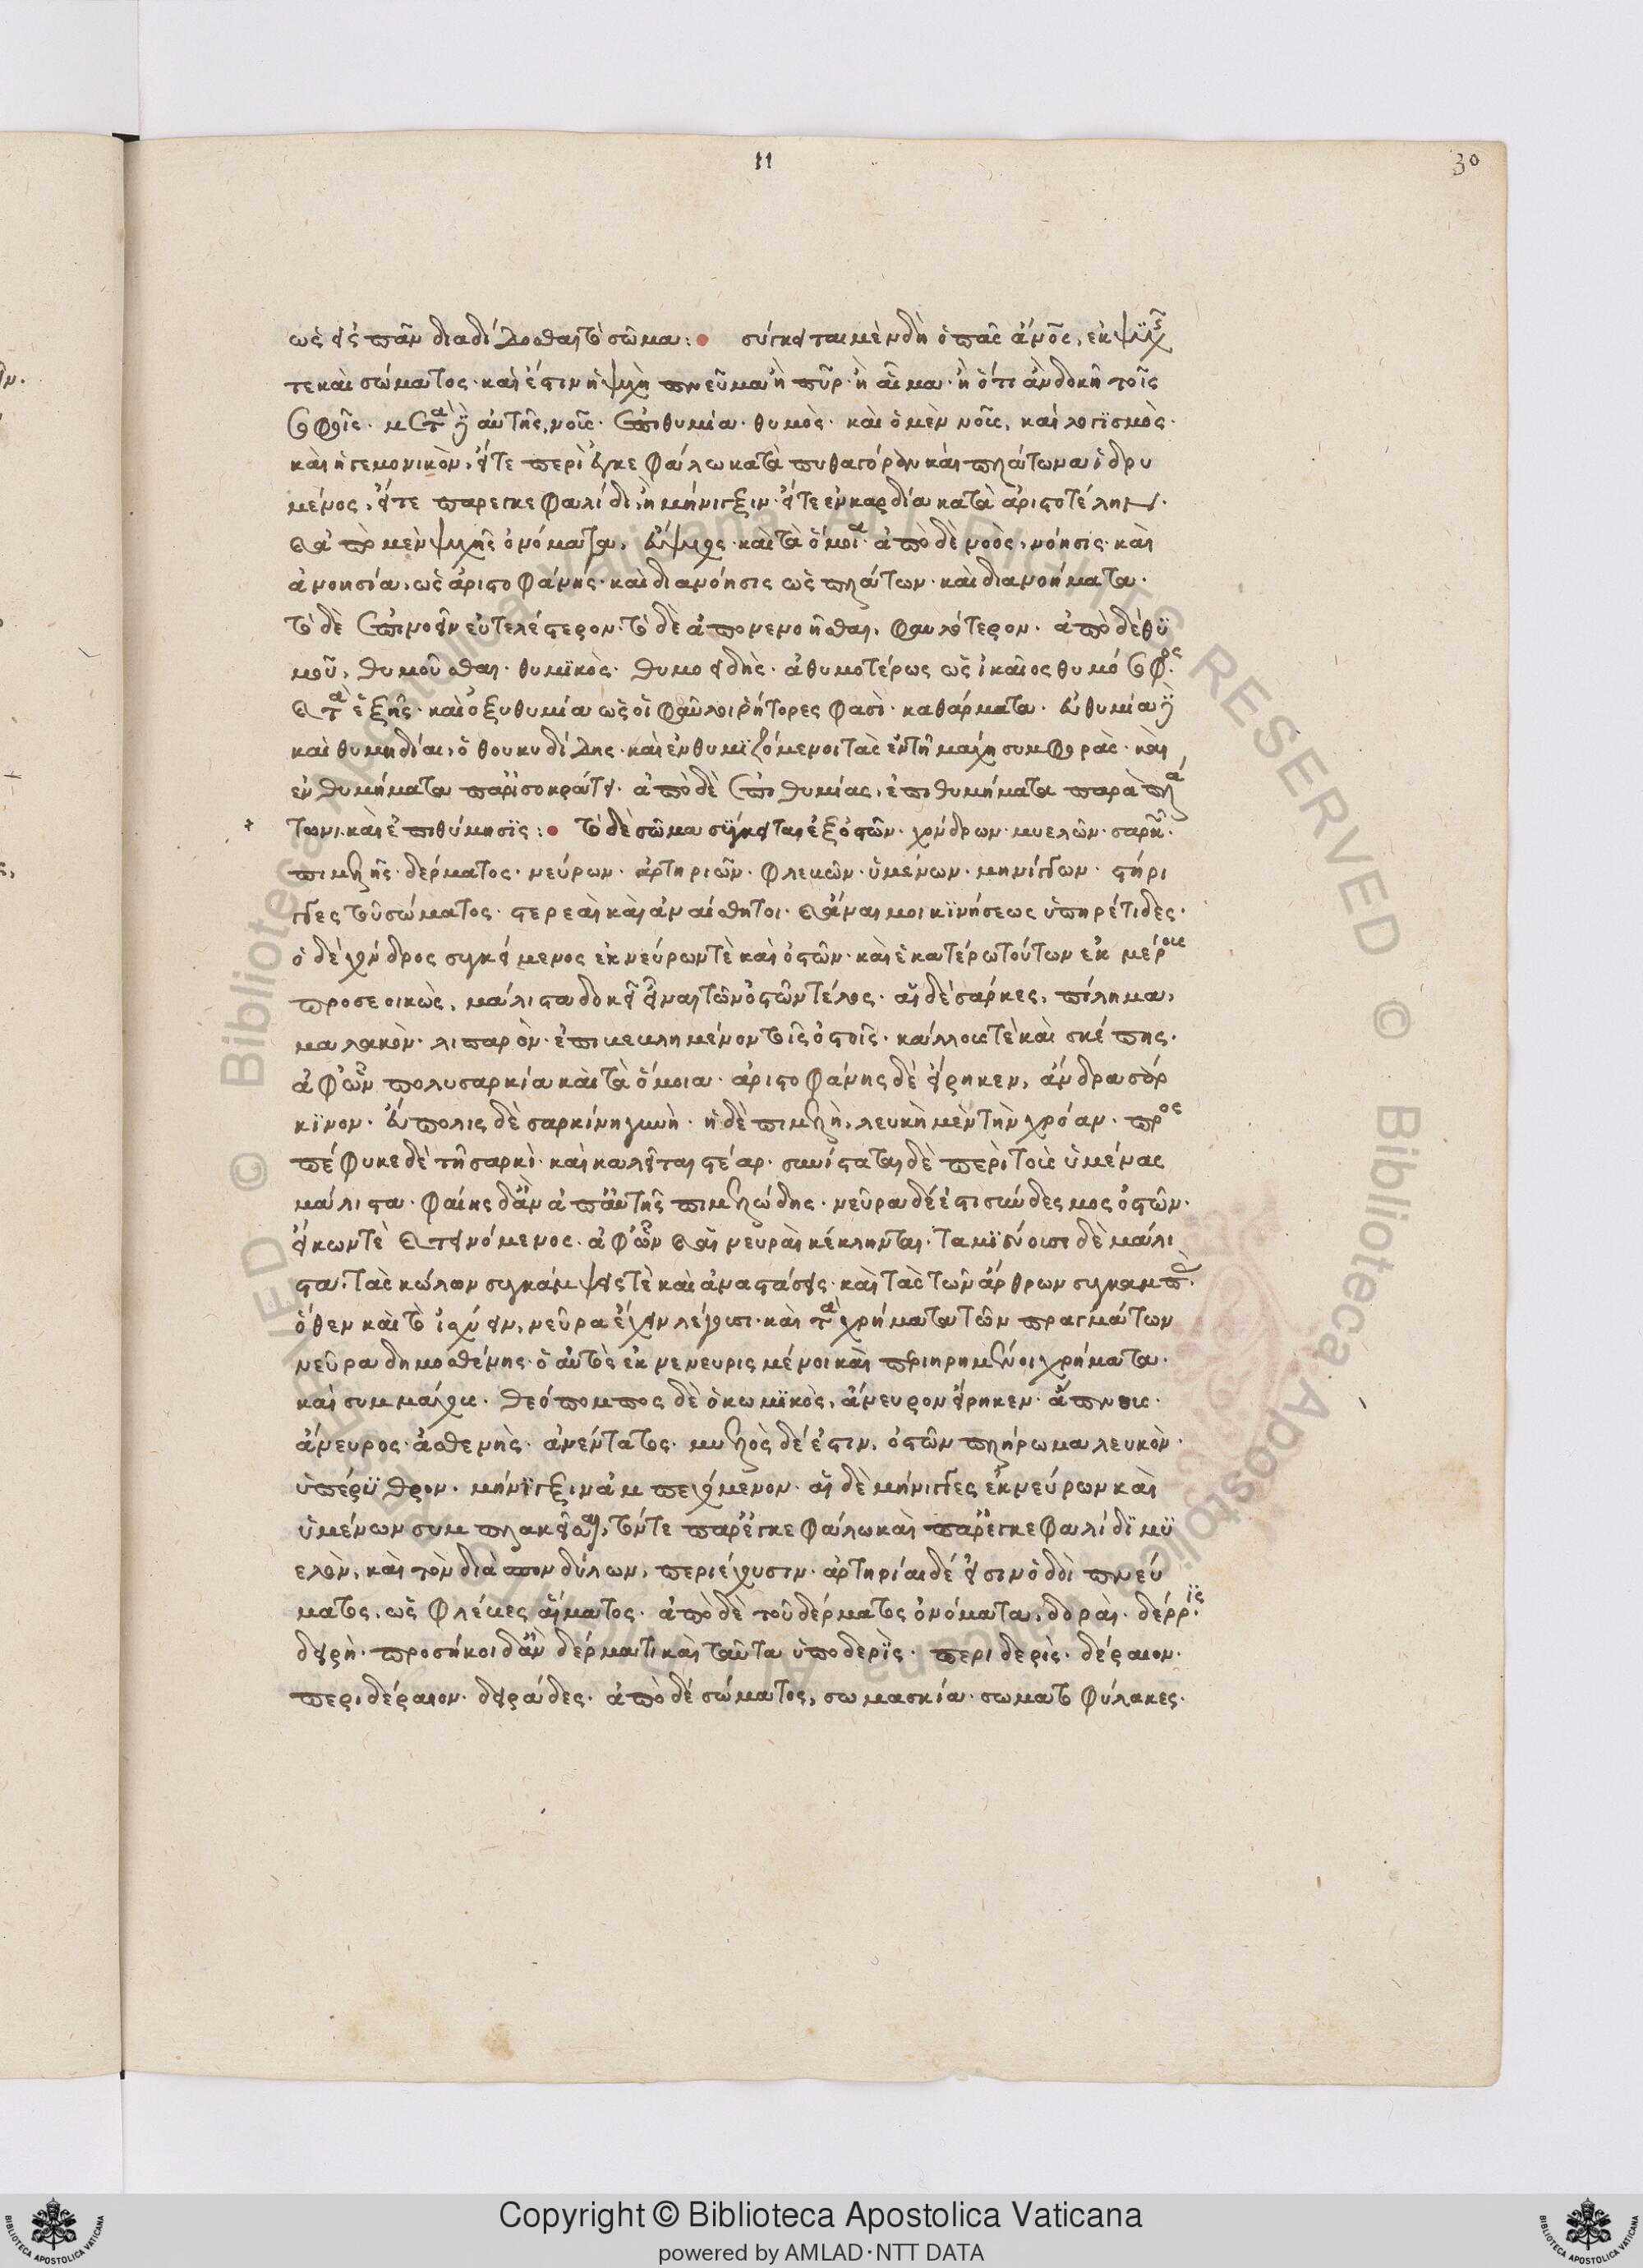 11
30
ὡς εἰς πᾶν διαδίδοσθαι τὸ σῶμα: σύγκειται μὲν δὴ ὁ πᾶς ἄνος, ἐκ ψυχῆς
τε καὶ σώματος· καὶ ἔστιν ἡ ψυχὴ πνεῦμα ἢ πῦρ· ἢ αἷμα· ἢ ὅτι ἂν δοκῇ τοῖς
σοφοῖς· μέρη αὐτῆς, νοῦς· ἐπιθυμία· θυμὸς· καὶ ὁ μὲν νοῦς, καὶ λογισμὸς·
καὶ ἡγεμονικὸν, εἴτε περὶ ἐγκεφάλω κατὰ πυθαγόραν καὶ πλάτωνα ἱδρυ
μένος, εἴτε παρεγκεφαλίδι, ἢ μήνιγξιν· εἴτε ἐν καρδία κατὰ ἀριστοτέλην·
μὲν ψυχῆς ὀνόματα, εὔψυχος· καὶ τὰ ὅμοια· ἀπὸ δὲ νοὸς, νόησις· καὶ
ἀνοησία, ὡς ἀριστοφάνης· καὶ διανόησις ὡς πλάτων· καὶ διανοήματα·
τὸ δὲ ἐπινοεῖν εὐτελέστερον· τὸ δὲ ἀπονενοῆσθαι, φαυλότερον· ἀπὸ δὲ θυ
μοῦ, θυμοῦσθαι· θυμικὸς· θυμοειδὴς· ἀθυμοτέρως ὡς ἰσαῖος θυμόσοφος·
ἑξῆς· καὶ ὀξυθυμία ὡς οἱ φαῦλοι ῥήτορες φασὶ· καθάρματα· εὐθυμία
καὶ θυμηδία, ὁ θουκυδίδης· καὶ ἐνθυμιζόμενοι τὰς ἐν τῇ μάχη συμφορὰς· καὶ
ἐνθυμήματα παρ' ἰσοκράτει· ἀπὸ δὲ ἐπιθυμίας, ἐπιθυμήματα παρὰ πλά
τωνι· καὶ ἐπιθύμησις: τὸ δὲ σῶμα σύγκειται ἐξ ὀστῶν· χόνδρων· μυελῶν· σαρκῶν·
πιμελῆς· δέρματος· νεύρων· ἀρτηριῶν· φλεβῶν· ὑμένων· μηνίγγων· στήρι
γγες τοῦ σώματος· στερεαὶ καὶ ἀναίσθητοι· κινήσεως ὑπηρέτιδες·
ὁ δὲ χόνδρος συγκείμενος ἐκ νεύρων τὲ καὶ ὀστῶν· καὶ ἑκατέρω τούτων ἐκ μέρους
προσεοικὼς, μάλιστα δοκεῖ εἶναι τῶν ὀστῶν τέλος· αἱ δὲ σάρκες, πίλημα,
μαλακὸν· λιπαρὸν· ἐπιβεβλημένον τοῖς ὀστοῖς· κάλλους τὲ καὶ σκέπης·
ἀφ' ὧν πολυσαρκία καὶ τὰ ὅμοια· ἀριστοφάνης δὲ εἴρηκεν, ἄνδρα σάρ
κινον· εὔπολις δὲ σαρκίνη γυνὴ· ἡ δὲ πιμελὴ, λευκὴ μὲν τὴν χρόαν· προσ
πέφυκε δὲ τῇ σαρκὶ· καὶ καλεῖται στέαρ· συνίσταται δὲ περὶ τοὺς ὑμένας
μάλιστα· φαίης δ' ἂν ἀπ' αὐτῆς πιμελώδης· νεῦρα δέ ἐστι σύνδεσμος ὀστῶν·
εἴκων τὲ τεινόμενος· ἀφ' ὧν αἱ νευραὶ κέκληνται· μάλι
στα, τὰς κώλων συγκάμψεις τὲ καὶ ἀναστάσεις· καὶ τὰς τῶν ἄρθρων συγκαμπὰς·
ὅθεν καὶ τὸ ἰσχύειν, νεῦρα ἔχειν λέγουσι· καὶ τὰ χρήματα τῶν πραγμάτων
νεῦρα δημοσθένης· ὁ αὐτὸς ἐκνενευρισμένοι καὶ περιηρημένοι χρήματα·
καὶ συμμάχους· θεόπομπος δὲ ὁ κωμικὸς, ἄνευρον εἴρηκεν· ἄπνους·
ἄνευρος· ἀσθενὴς· ἀνέντατος· μυελὸς δέ ἐστιν, ὀστῶν πλήρωμα λευκὸν·
ὑπέρυθρον· μήνιγξιν ἀμπεχόμενον· αἱ δὲ μήνιγγες ἐκ νεύρων καὶ
ὑμένων συμπλακεῖσαι, τόντε παρ' ἐγκεφάλω καὶ παρ' ἐγκεφαλίδι μυ
ελὸν, καὶ τὸν διὰ σπονδύλων, περιέχουσιν· ἀρτηρίαι δέ εἰσιν ὁδοὶ πνεύ
ματος, ὡς φλέβες αἵματος· ἀπὸ δὲ τοῦ δέρματος ὀνόματα, δοραὶ· δέρρις·
δειρὴ· προσήκοι δ' ἂν δέρματι καὶ ταῦτα ὑποδερὶς· περιδερὶς· δέραιον·
περιδέραιον· δειράδες· ἀπὸ δὲ σώματος, σωμασκία· σωματοφύλακες·
© Biblioteca Apostolica Vaticana ALL RIGHTS RESERVED
Copyright © Biblioteca Apostolica Vaticana
powered by AMLAD·NTT DATA
BIBLIOTECA APOSTOLICA VATICANA
BIBLIOTECA APOSTOLICA VATICANA